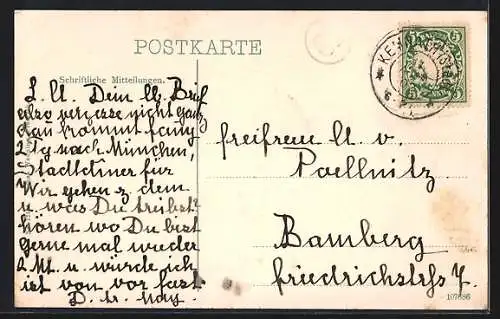 POSTKARTE
Schriftliche Mitteilungen.
L. U. Dein lb. Brief
also vergesse nicht ganz
dan kommt
2 Tg nach München,
für
Wir gehen z. dem
u was Du treibst
hören wo Du bist
Gerne mal wieder
2 Mt. u. würde ich
ist von vor fast
D. tr. May.
5 5
freifreu U. v.
Poellnitz
Bamberg
friedrichstrfs 7.
107686